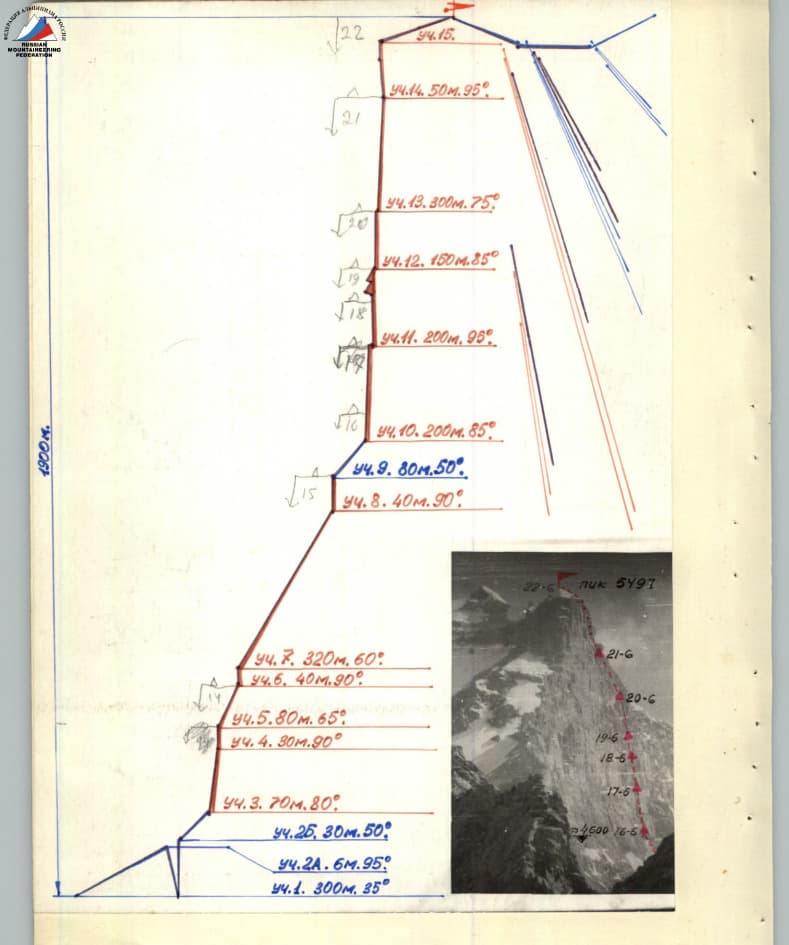 ФЕДЕРАЦИЯ АЛЬПИНИЗМА РОССИИ
RUSSIAN
MOUNTAINEERING
FEDERATION
22
уч.15.
уч.14. 50м. 95°.
21
уч.13. 300м. 75°.
20
уч.12. 150м. 85°.
19
18
уч.11. 200м. 95°.
16
уч.10. 200м. 85°.
1900м.
уч.9. 80м. 50°.
15
уч.8. 40м. 90°.
уч.7. 320м. 60°.
уч.6. 40м. 90°.
14
уч.5. 80м. 65°.
уч.4. 30м. 90°
уч.3. 70м. 80°.
уч.2Б. 30м. 50°.
уч.2А. 6м. 95°.
уч.1. 300м. 35°
22-6 пик 5497
21-6
20-6
19-6
18-6
17-6
≈4600 16-6